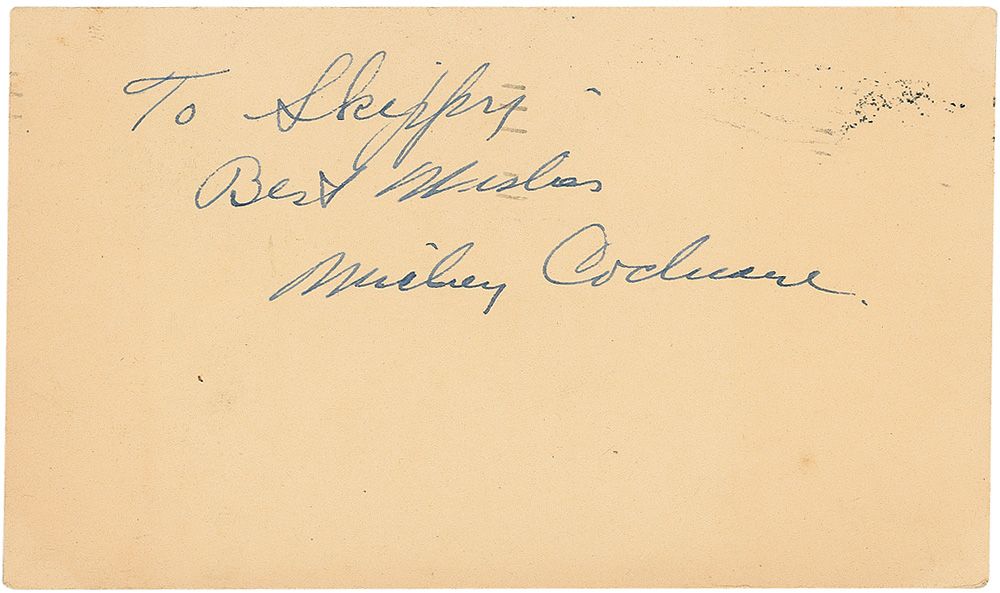 To Skippy -
Best Wishes
Mickey Cochrane.